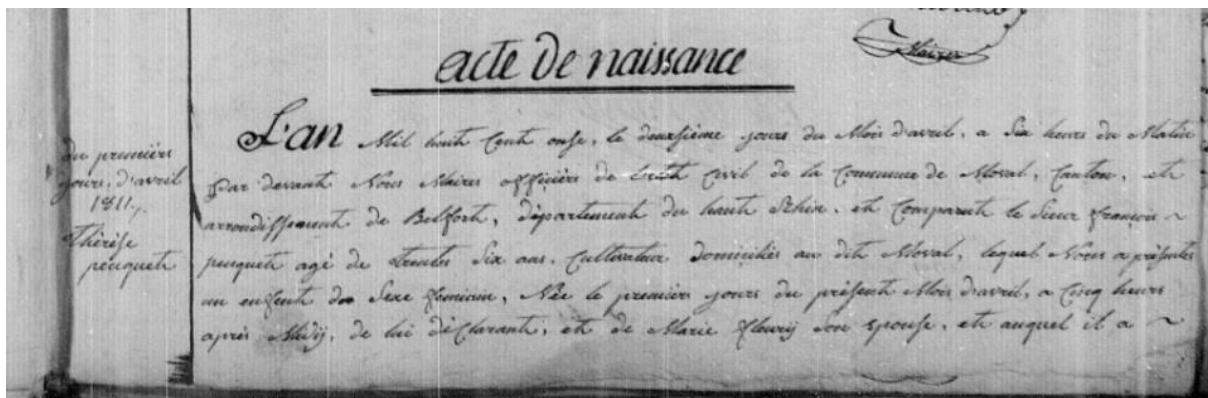 Maire
acte de naissance
du premiers
jours, d'avril
1811,
thérèse
peuqueti
L'an Mil huit Cent onse, le deuxsième jours du Mois d'avril, a Six heurs du Matin
par devant Nous Maires officiérs de Civil de la Commune de Moval, Canton, et
arrondissement de Belfort, département du hauth Rhin, et Comparut le Sieur françois ~
peuqueti agé de trentes Six ans, Cultivateur domiciliés au dit Moval, lequel Nous a présentes
un enfent du Sexe feminin, Née le premiérs jours du présent Mois d'avril, a Cinq heurs
aprés Midÿ, de lui déClarant, et de Marie fleurÿ Son epouse, eth auquel il a ~